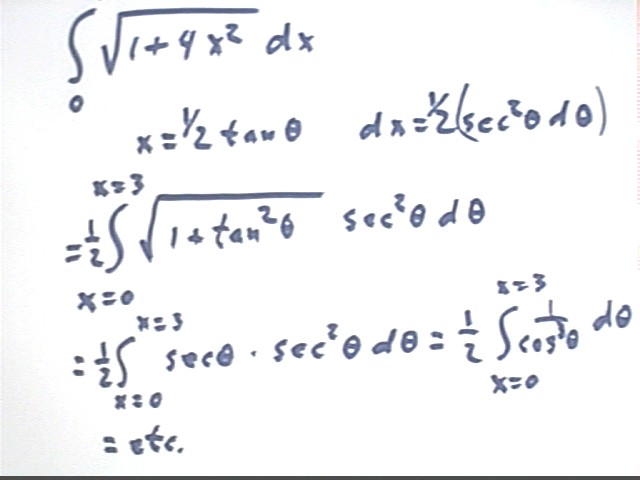 ∫₀ √(1+4x²) dx
x = 1/2 tan θ dx = 1/2 (sec²θ dθ)
= 1/2 ∫_{x=0}^{x=3} √(1+tan²θ) sec²θ dθ
= 1/2 ∫_{x=0}^{x=3} secθ · sec²θ dθ = 1/2 ∫_{x=0}^{x=3} 1/cos³θ dθ
= etc.